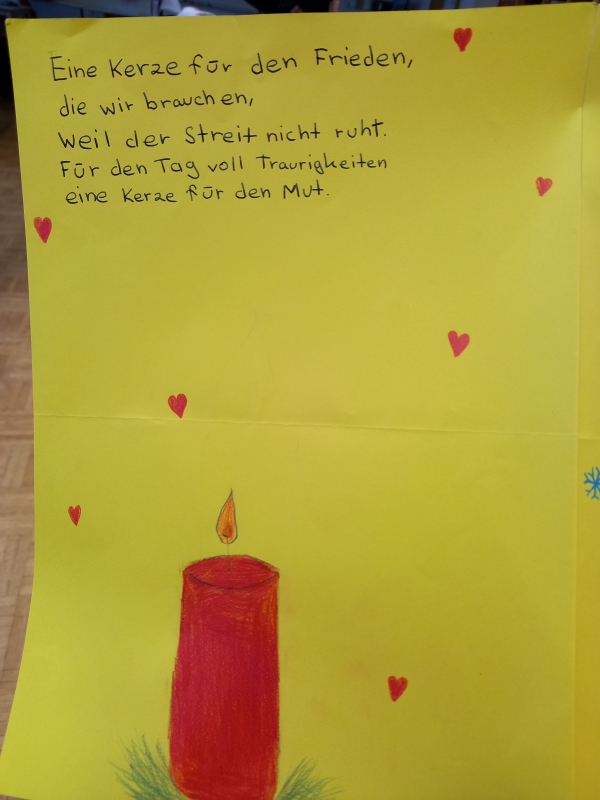 Eine Kerze für den Frieden,
die wir brauchen,
weil der Streit nicht ruht.
Für den Tag voll Traurigkeiten
eine Kerze für den Mut.